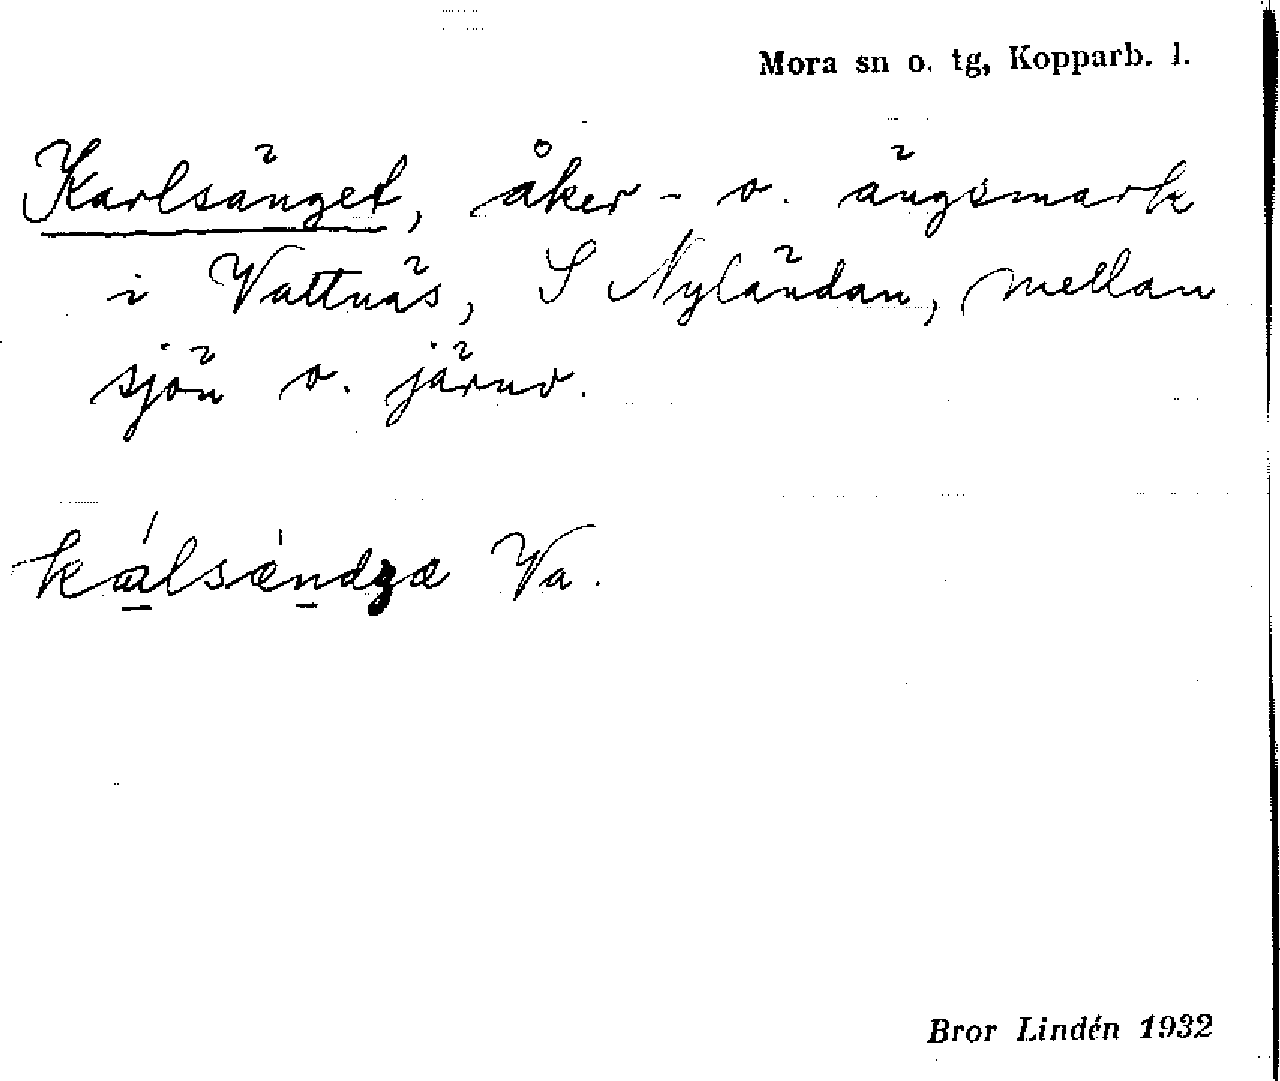 Mora sn o. tg, Kopparb. l.
Karlsänget, åker- o. ängsmark
i Vattnäs, S Nyländan, mellan
sjön o. järnv.
Va.
Bror Lindén 1932